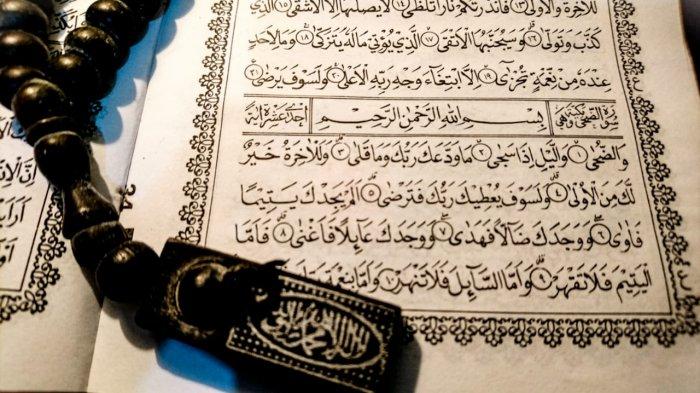 لَلْاٰخِرَةَ وَالْاُوْلٰى ١٣ فَاَنْذَرْتُكُمْ نَارًا تَلَظّٰى ١٤ لَا يَصْلٰىهَا اِلَّا الْاَشْقَى ١٥ الَّذِيْ
كَذَّبَ وَتَوَلّٰى ١٦ وَسَيُجَنَّبُهَا الْاَتْقَى ١٧ الَّذِيْ يُؤْتِيْ مَالَهٗ يَتَزَكّٰى ١٨ وَمَا لِاَحَدٍ
عِنْدَهٗ مِنْ نِعْمَةٍ تُجْزٰٓى ١٩ اِلَّا ابْتِغَآءَ وَجْهِ رَبِّهِ الْاَعْلٰى ٢٠ وَلَسَوْفَ يَرْضٰى ٢١
سورة الضحى مكية وهي بِسْمِ اللّٰهِ الرَّحْمٰنِ الرَّحِيْمِ احدى عشرة اية
وَالضُّحٰى ١ وَالَّيْلِ اِذَا سَجٰى ٢ مَا وَدَّعَكَ رَبُّكَ وَمَا قَلٰى ٣ وَلَلْاٰخِرَةُ خَيْرٌ
لَّكَ مِنَ الْاُوْلٰى ٤ وَلَسَوْفَ يُعْطِيْكَ رَبُّكَ فَتَرْضٰى ٥ اَلَمْ يَجِدْكَ يَتِيْمًا
فَاٰوٰى ٦ وَوَجَدَكَ ضَآلًّا فَهَدٰى ٧ وَوَجَدَكَ عَآئِلًا فَاَغْنٰى ٨ فَاَمَّا
الْيَتِيْمَ فَلَا تَقْهَرْ ٩ وَاَمَّا السَّآئِلَ فَلَا تَنْهَرْ ١٠ وَاَمَّا بِنِعْمَةِ